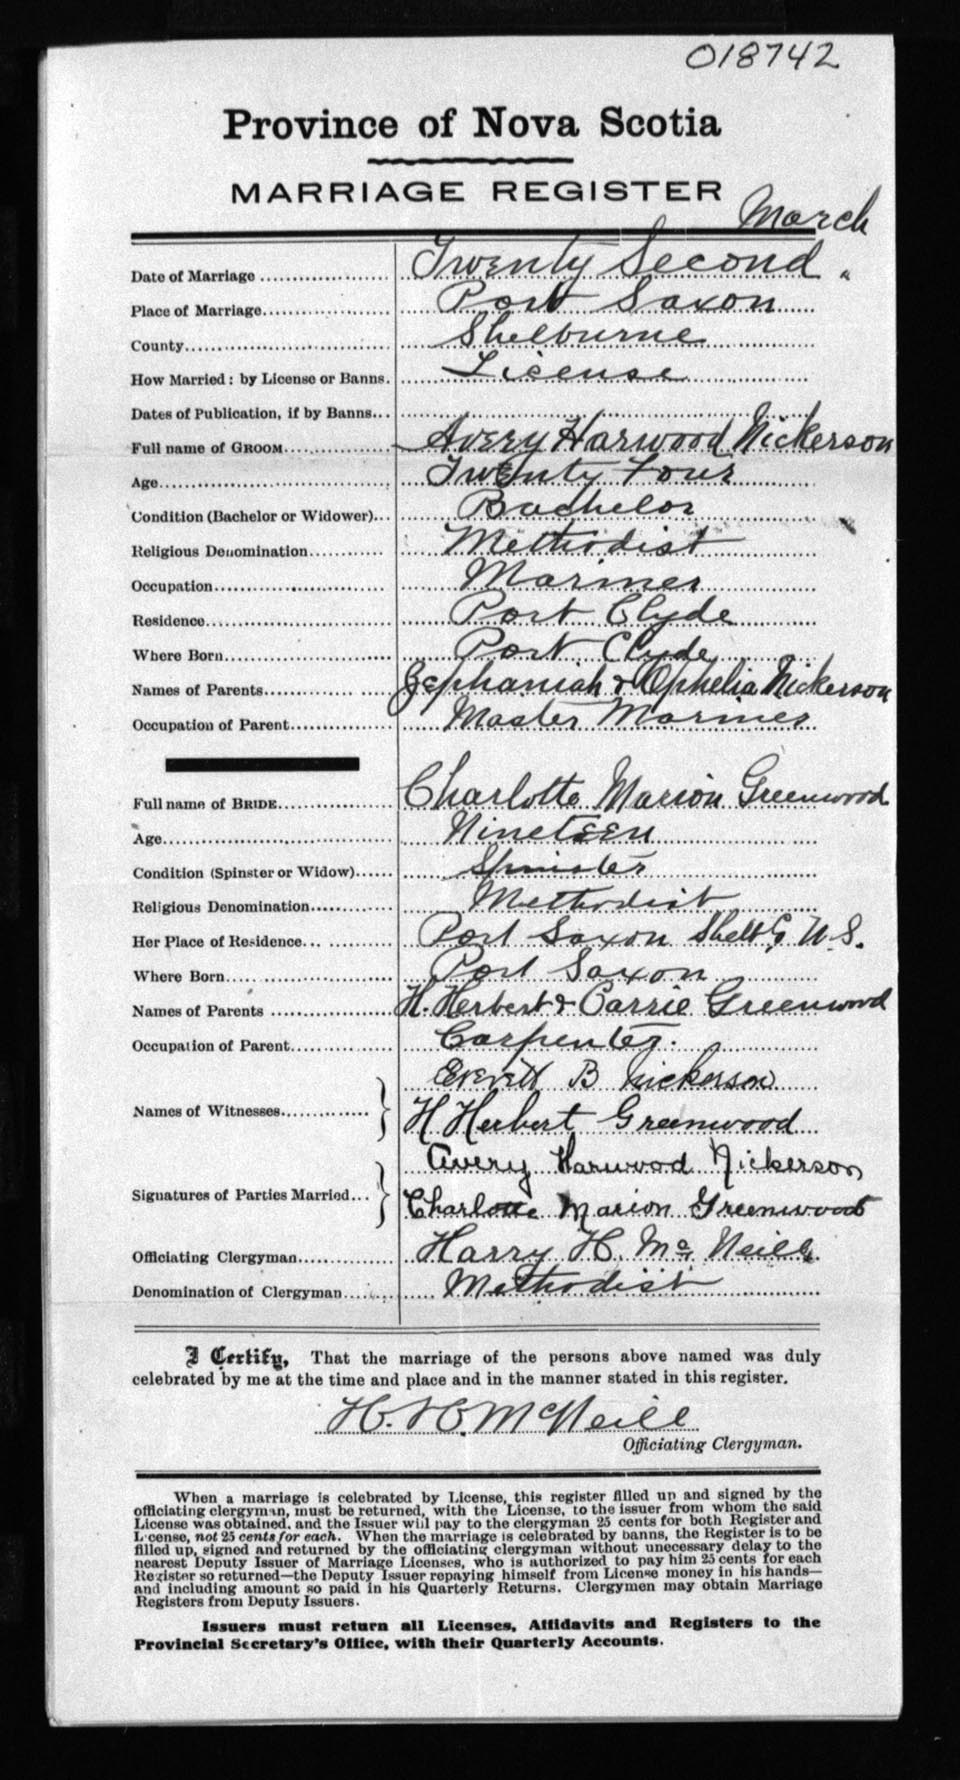 018742
Province of Nova Scotia
MARRIAGE REGISTER
March
Date of Marriage Twenty Second "
Place of Marriage Port Saxon
County Shelburne
How Married: by License or Banns. License
Dates of Publication, if by Banns
Full name of GROOM Avery Harwood Nickerson
Age Twenty Four
Condition (Bachelor or Widower) Bachelor
Religious Denomination Methodist
Occupation Mariner
Residence Port Clyde
Where Born Port Clyde
Names of Parents Zephaniah & Ophelia Nickerson
Occupation of Parent Master Mariner
Full name of BRIDE Charlotte Marion Greenwood
Age Nineteen
Condition (Spinster or Widow) Spinster
Religious Denomination Methodist
Her Place of Residence Port Saxon N.S.
Where Born Port Saxon
Names of Parents H. Herbert & Carrie Greenwood
Occupation of Parent Carpenter.
Everett B Nickerson
Names of Witnesses
H Herbert Greenwood
Avery Harwood Nickerson
Signatures of Parties Married
Charlotte Marion Greenwood
Officiating Clergyman Harry H. McNeill
Denomination of Clergyman Methodist
I Certify, That the marriage of the persons above named was duly
celebrated by me at the time and place and in the manner stated in this register.
H. H. McNeill
Officiating Clergyman.
When a marriage is celebrated by License, this register filled up and signed by the
officiating clergyman, must be returned, with the License, to the issuer from whom the said
License was obtained, and the Issuer will pay to the clergyman 25 cents for both Register and
License, not 25 cents for each. When the marriage is celebrated by banns, the Register is to be
filled up, signed and returned by the officiating clergyman without unecessary delay to the
nearest Deputy Issuer of Marriage Licenses, who is authorized to pay him 25 cents for each
Register so returned—the Deputy Issuer repaying himself from License money in his hands—
and including amount so paid in his Quarterly Returns. Clergymen may obtain Marriage
Registers from Deputy Issuers.
Issuers must return all Licenses, Affidavits and Registers to the
Provincial Secretary's Office, with their Quarterly Accounts.